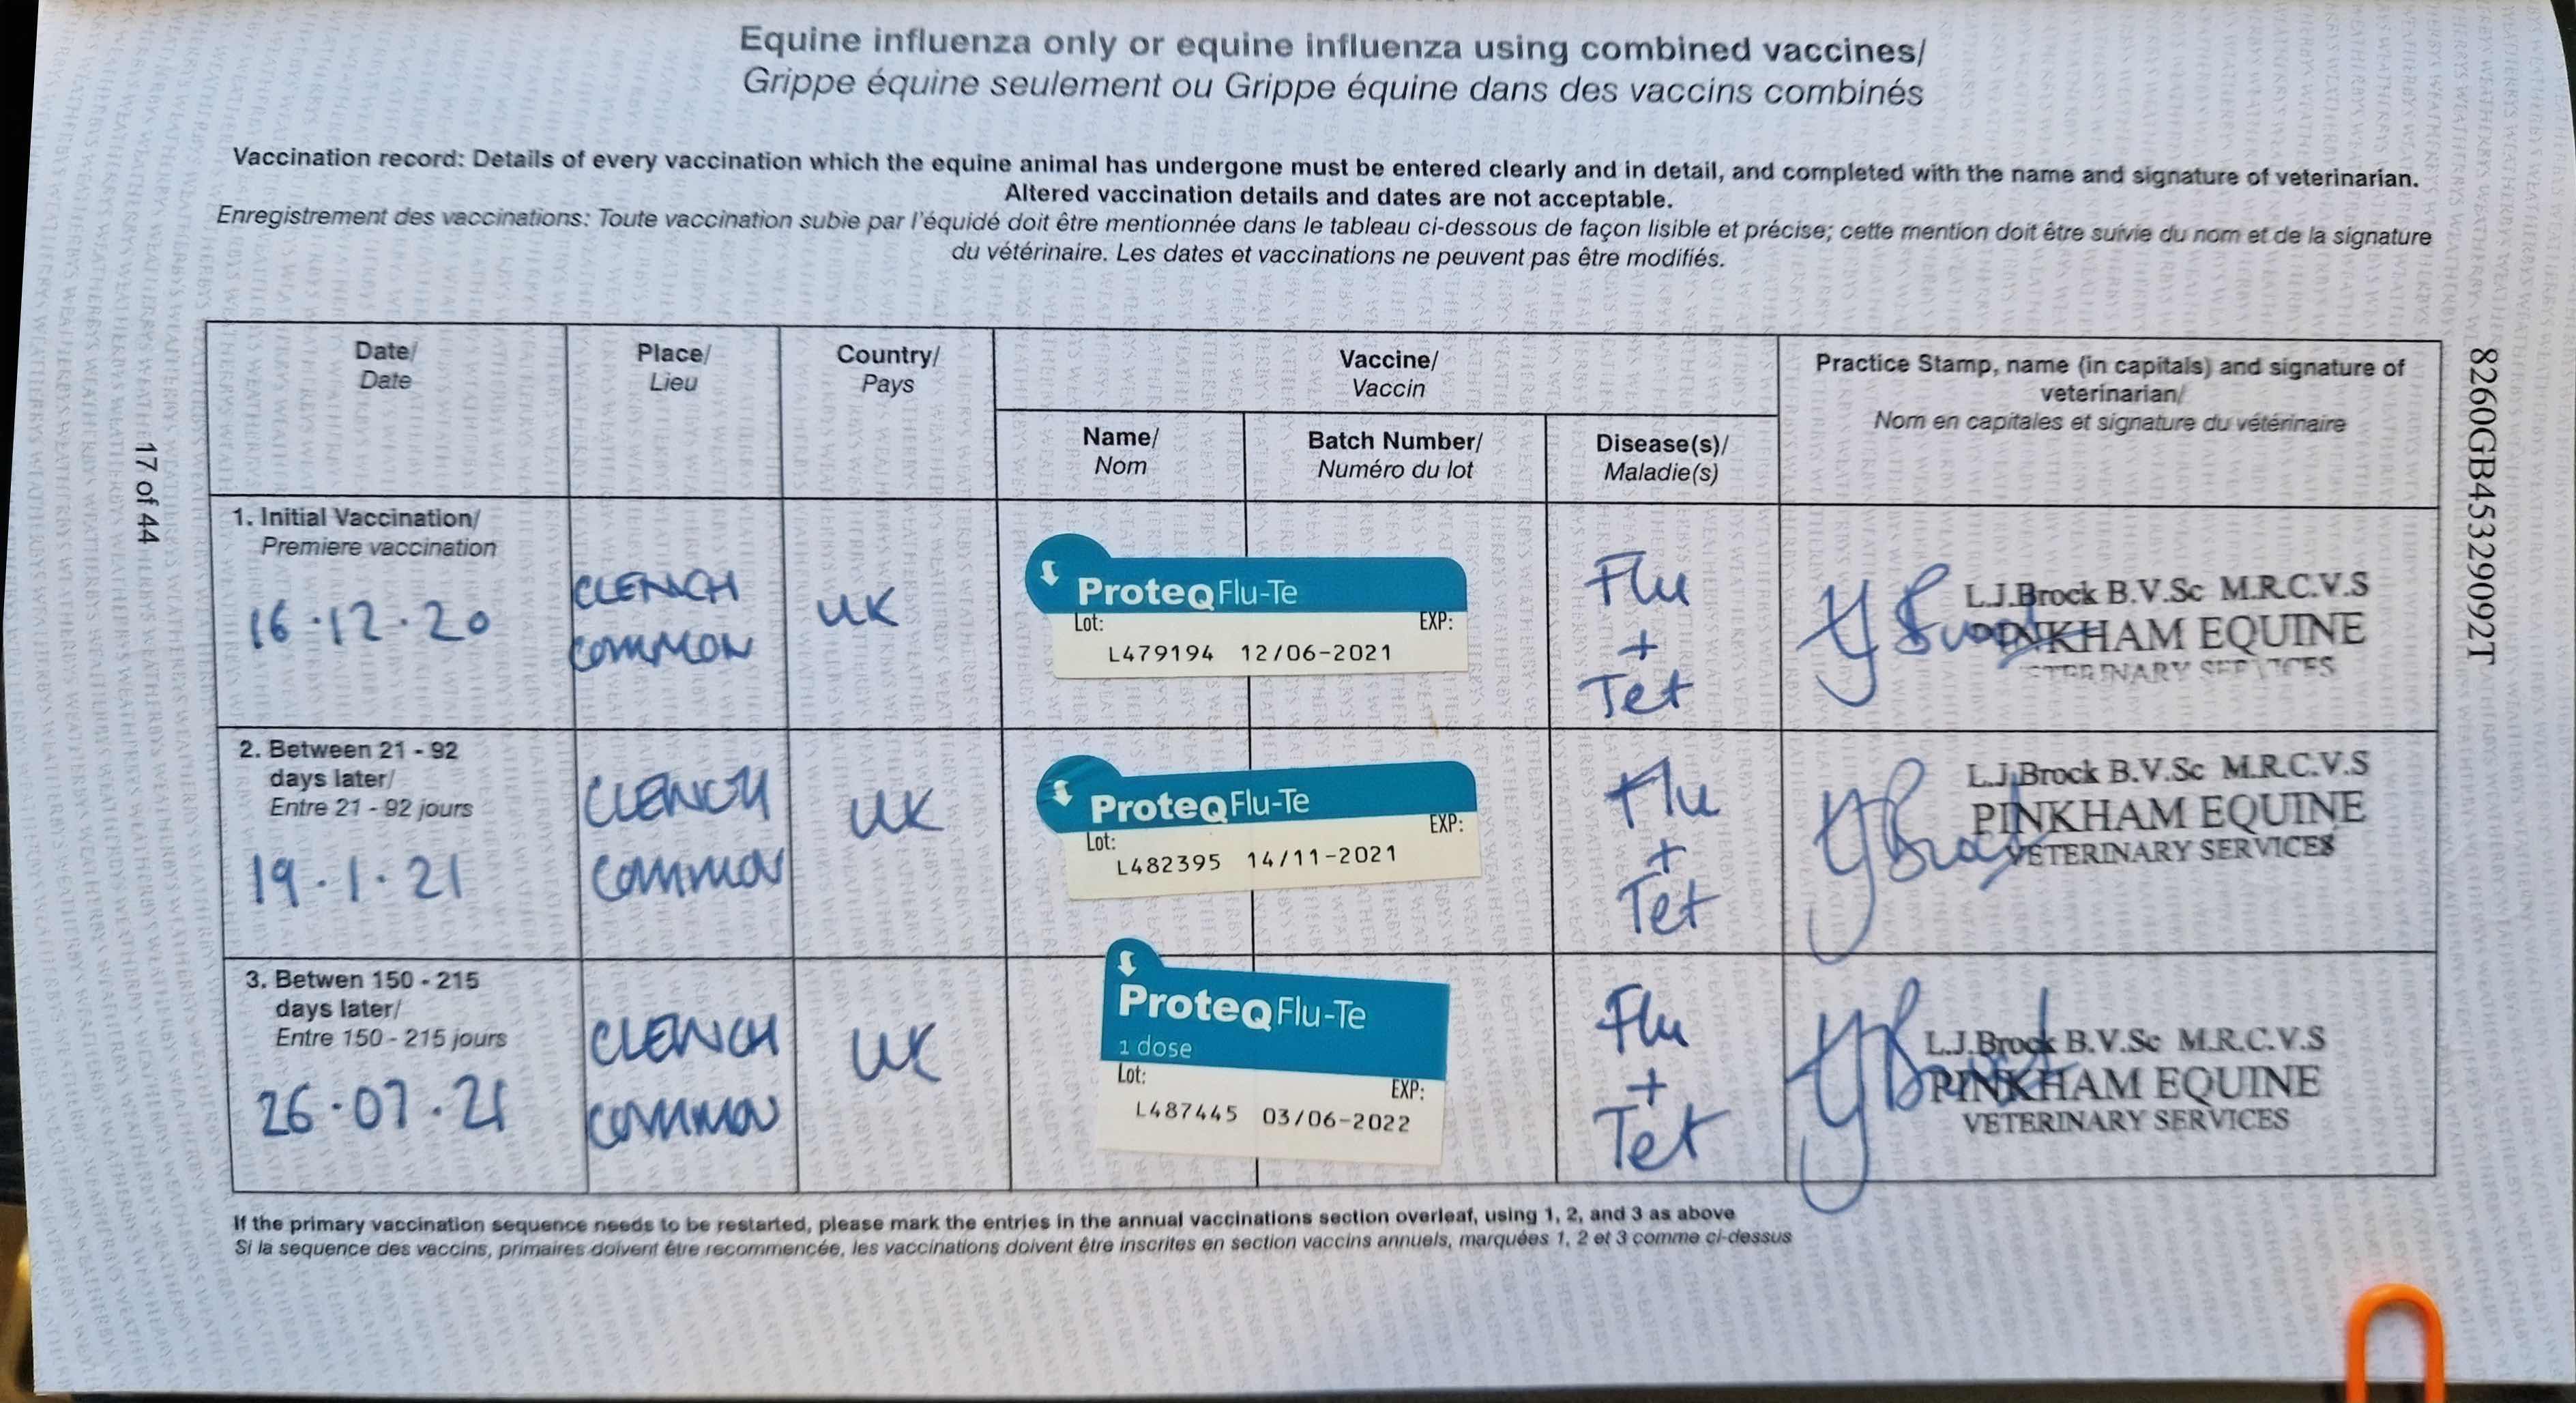 Equine influenza only or equine influenza using combined vaccines/
Grippe équine seulement ou Grippe équine dans des vaccins combinés
Vaccination record: Details of every vaccination which the equine animal has undergone must be entered clearly and in detail, and completed with the name and signature of veterinarian.
Altered vaccination details and dates are not acceptable.
Enregistrement des vaccinations: Toute vaccination subie par l'équidé doit être mentionnée dans le tableau ci-dessous de façon lisible et précise; cette mention doit être suivie du nom et de la signature
du vétérinaire. Les dates et vaccinations ne peuvent pas être modifiés.
Date/
Date
Place/
Lieu
Country/
Pays
Vaccine/
Vaccin
Name/
Nom
Batch Number/
Numéro du lot
Disease(s)/
Maladie(s)
Practice Stamp, name (in capitals) and signature of
veterinarian/
Nom en capitales et signature du vétérinaire
1. Initial Vaccination/
Premiere vaccination
16.12.20
CLENCH
COMMON
UK
ProteqFlu-Te
Lot: EXP:
L479194 12/06-2021
Flu
+
Tet
L.J.Brock B.V.Sc M.R.C.V.S
PINKHAM EQUINE
VETERINARY SERVICES
2. Between 21 - 92
days later/
Entre 21 - 92 jours
19.1.21
CLENCH
COMMON
UK
ProteqFlu-Te
Lot: EXP:
L482395 14/11-2021
Flu
+
Tet
L.J.Brock B.V.Sc M.R.C.V.S
PINKHAM EQUINE
VETERINARY SERVICES
3. Betwen 150 - 215
days later/
Entre 150 - 215 jours
26.07.21
CLENCH
COMMON
UK
ProteqFlu-Te
1 dose
Lot: EXP:
L487445 03/06-2022
Flu
+
Tet
L.J.Brock B.V.Sc M.R.C.V.S
PINKHAM EQUINE
VETERINARY SERVICES
If the primary vaccination sequence needs to be restarted, please mark the entries in the annual vaccinations section overleaf, using 1, 2, and 3 as above
Si la sequence des vaccins, primaires doivent être recommencée, les vaccinations doivent être inscrites en section vaccins annuels, marquées 1, 2 et 3 comme ci-dessus
17 of 44
8260GB45329092T